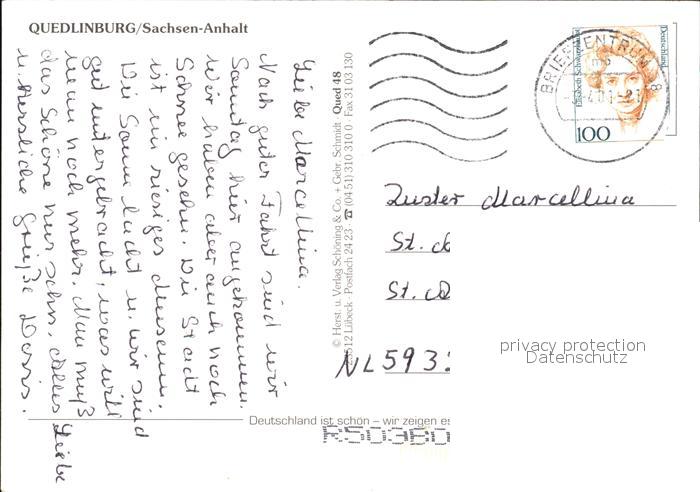 QUEDLINBURG/Sachsen-Anhalt
Liebe Marcellina.
Nach guter Fahrt sind wir
Sonntag hier angekommen.
Wir haben aber auch noch
Schnee gesehn. Die Stadt
ist ein riesiges Museum.
Die Sonne lacht u. wir sind
gut untergebracht, was will
man noch mehr. Man muß
das Schöne nur sehn. Alles Liebe
u. herzliche Grüße Doris.
© Herst. u. Verlag Schöning & Co. + Gebr. Schmidt · Qued 48
Lübeck · Postfach 24 23 · ☎ (04 51) 310 310 0 · Fax 31 03 130
Deutschland
Elisabeth Schwarzhaupt
100
BRIEFZENTRUM
Zuster Marcellina
St.
St.
NL 593
privacy protection
Datenschutz
Deutschland ist schön – wir zeigen es